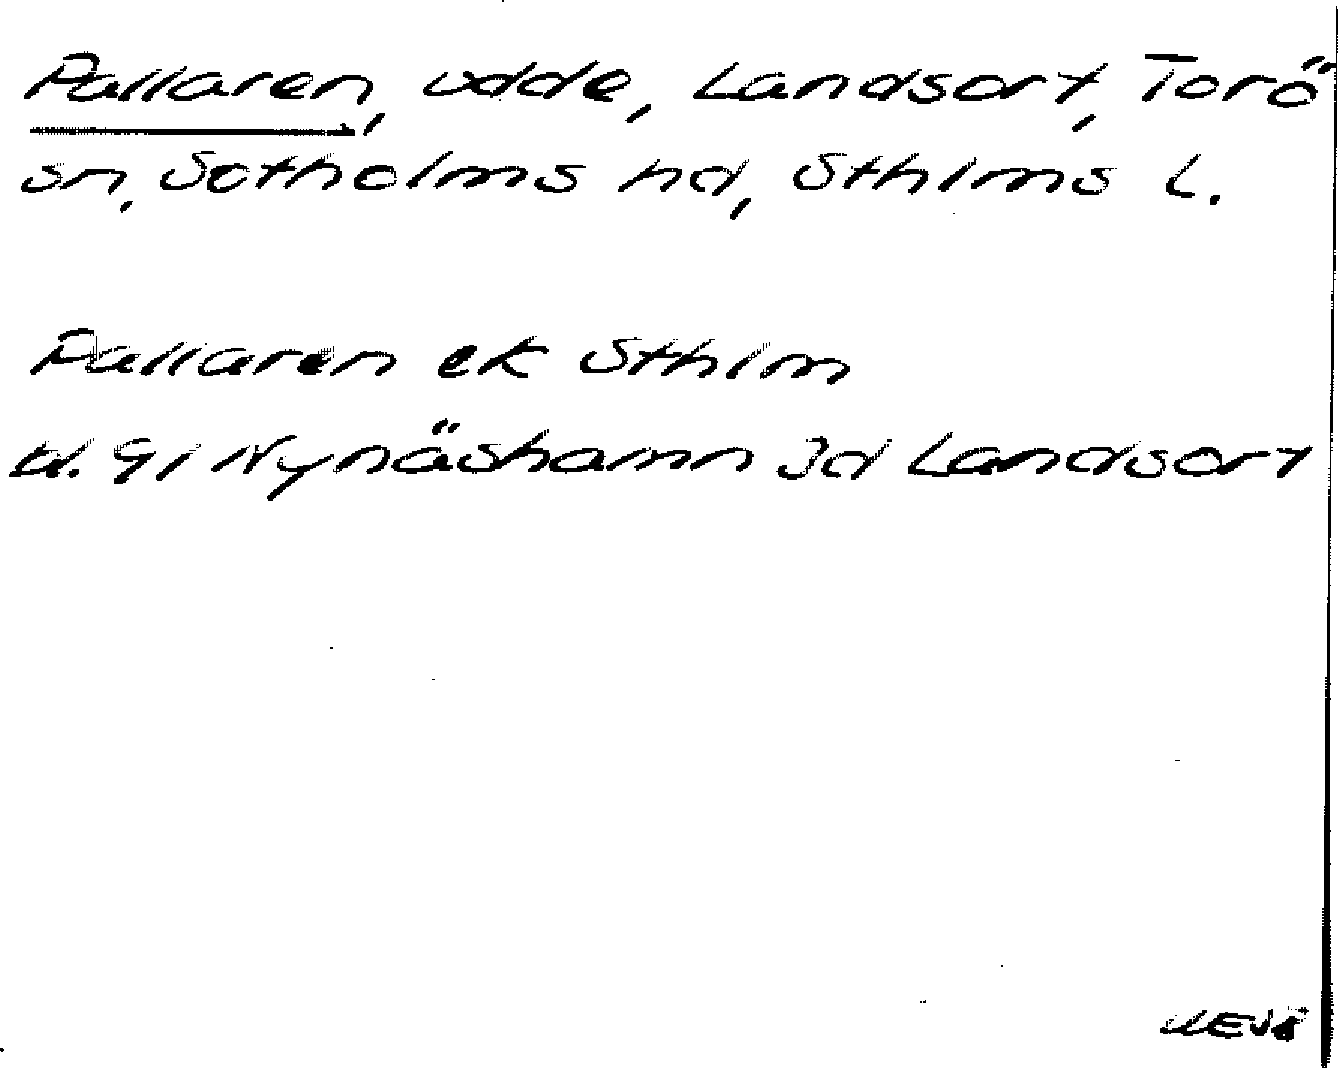 Pallaren, udde, Landsort, Torö
sn, Sotholms hd, Sthlms l.
Pallaren ek Sthlm
bl. 91 Nynäshamn Id Landsort